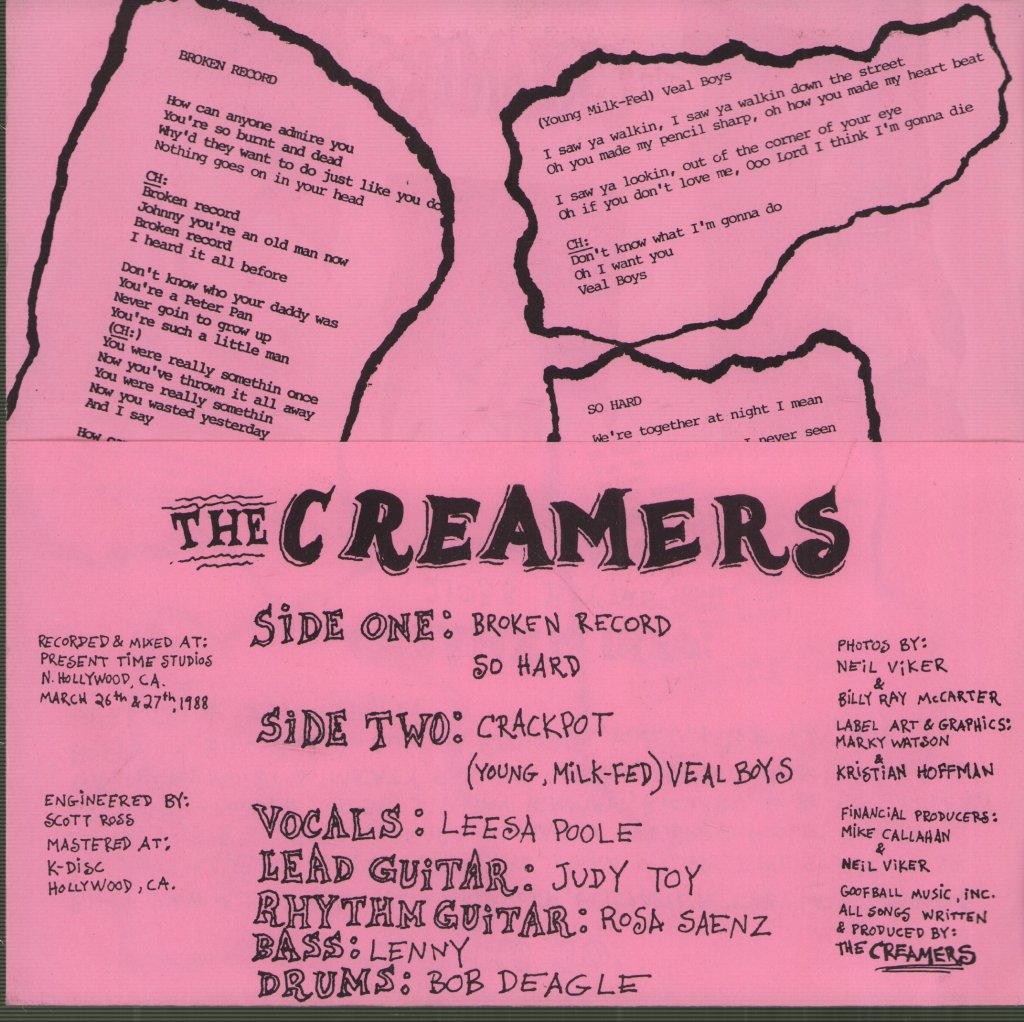 BROKEN RECORD
How can anyone admire you
You're so burnt and dead
Why'd they want to do just like you do
Nothing goes on in your head
CH:
Broken record
Johnny you're an old man now
Broken record
I heard it all before
Don't know who your daddy was
You're a Peter Pan
Never goin to grow up
You're such a little man
(CH:)
You were really somethin once
Now you've thrown it all away
You were really somethin
Now you wasted yesterday
And I say
How
(Young Milk-Fed) Veal Boys
I saw ya walkin, I saw ya walkin down the street
Oh you made my pencil sharp, oh how you made my heart beat
I saw ya lookin, out of the corner of your eye
Oh if you don't love me, Ooo Lord I think I'm gonna die
CH:
Don't know what I'm gonna do
Oh I want you
Veal Boys
SO HARD
We're together at night I mean
I never seen
THE CREAMERS
SiDE ONE: BROKEN RECORD
SO HARD
SiDE TWO: CRACKPOT
(YOUNG, MiLK-FED) VEAL BOYS
VOCALS: LEESA POOLE
LEAD GUiTAR: JUDY TOY
RHYTHM GUiTAR: ROSA SAENZ
BASS: LENNY
DRUMS: BOB DEAGLE
RECORDED & MiXED AT:
PRESENT TiME STUDiOS
N. HOLLYWOOD, CA.
MARCH 26th & 27th, 1988
ENGiNEERED BY:
SCOTT ROSS
MASTERED AT:
K-DiSC
HOLLYWOOD, CA.
PHOTOS BY:
NEiL ViKER
&
BiLLY RAY McCARTER
LABEL ART & GRAPHiCS:
MARKY WATSON
&
KRiSTiAN HOFFMAN
FiNANCiAL PRODUCERS:
MiKE CALLAHAN
&
NEiL ViKER
GOOFBALL MUSiC, iNC.
ALL SONGS WRiTTEN
& PRODUCED BY:
THE CREAMERS